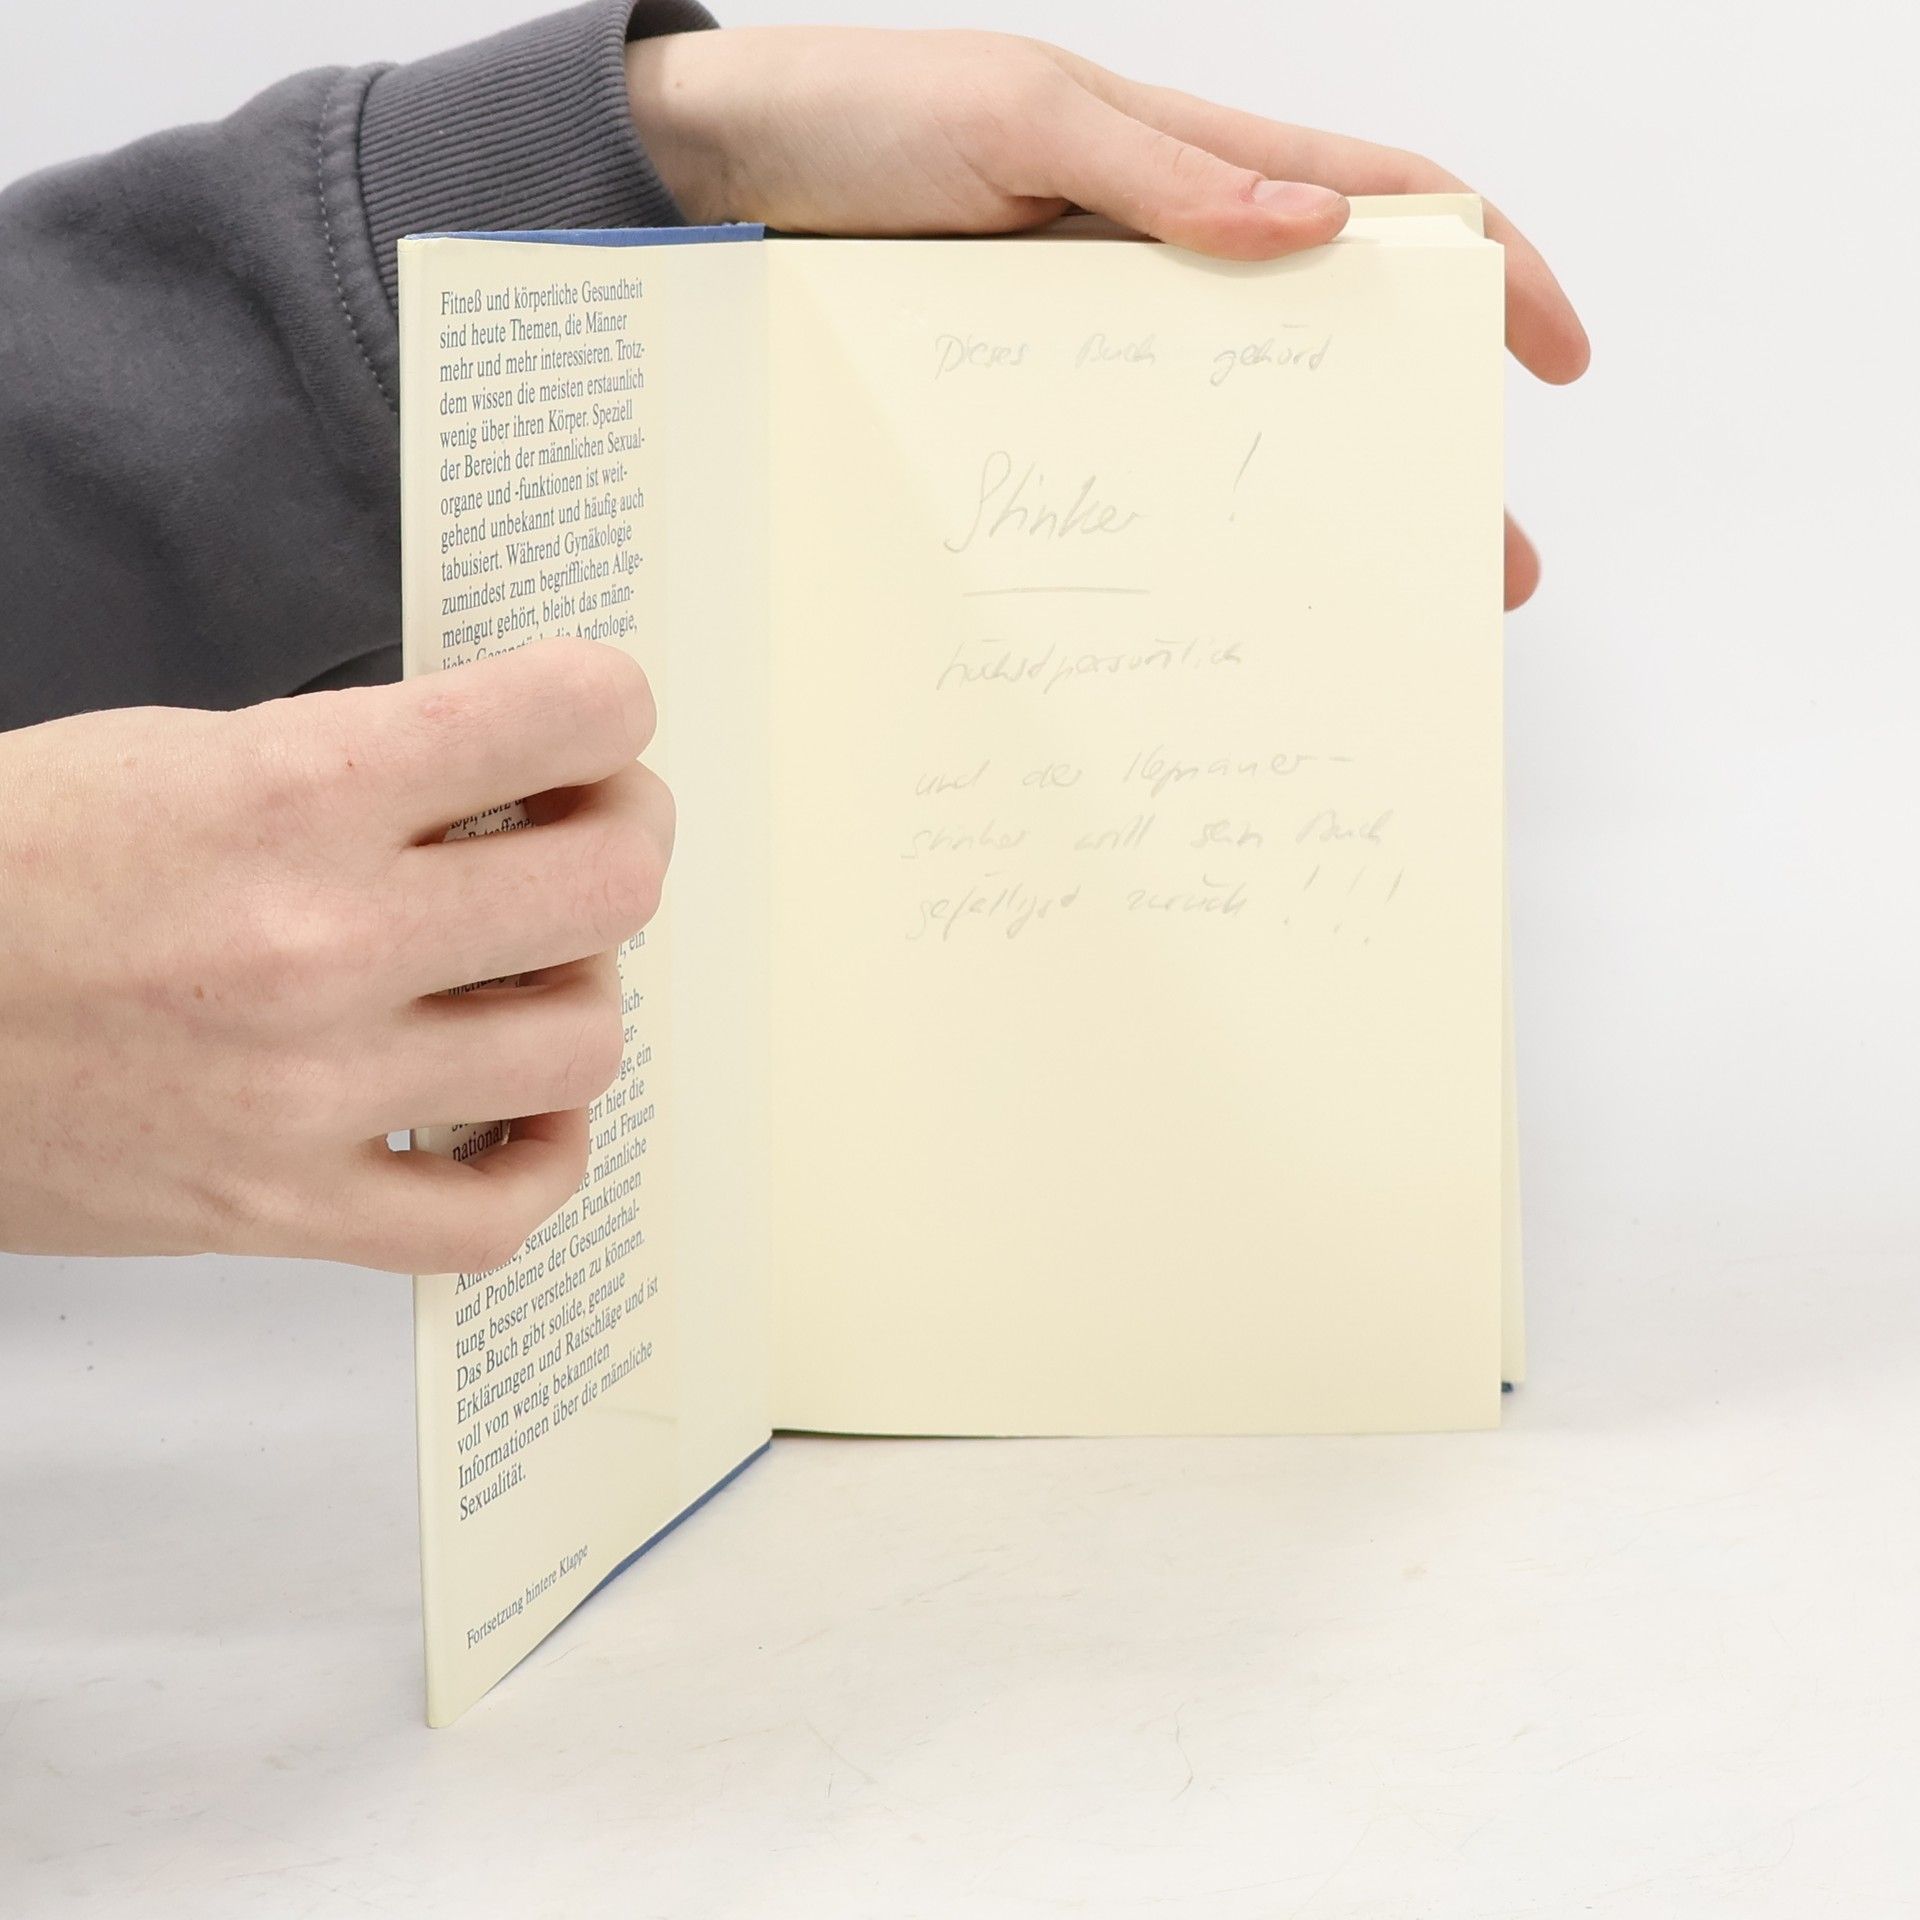 Fitneß und körperliche Gesundheit
sind heute Themen, die Männer
mehr und mehr interessieren. Trotz-
dem wissen die meisten erstaunlich
wenig über ihren Körper. Speziell
der Bereich der männlichen Sexual-
organe und -funktionen ist weit-
gehend unbekannt und häufig auch
tabuisiert. Während Gynäkologie
zumindest zum begrifflichen Allge-
meingut gehört, bleibt das männ-
liche Gegenstück, die Andrologie,
ein
lich-
er-
ein
hier die
national und Frauen
männliche
sexuellen Funktionen
und Probleme der Gesunderhal-
tung besser verstehen zu können.
Das Buch gibt solide, genaue
Erklärungen und Ratschläge und ist
voll von wenig bekannten
Informationen über die männliche
Sexualität.
Fortsetzung hintere Klappe
Dieses Buch gehörd
Stinker !
höchstpersönlich
und der
stinker will sein Buch
gefälligst zurück ! ! !